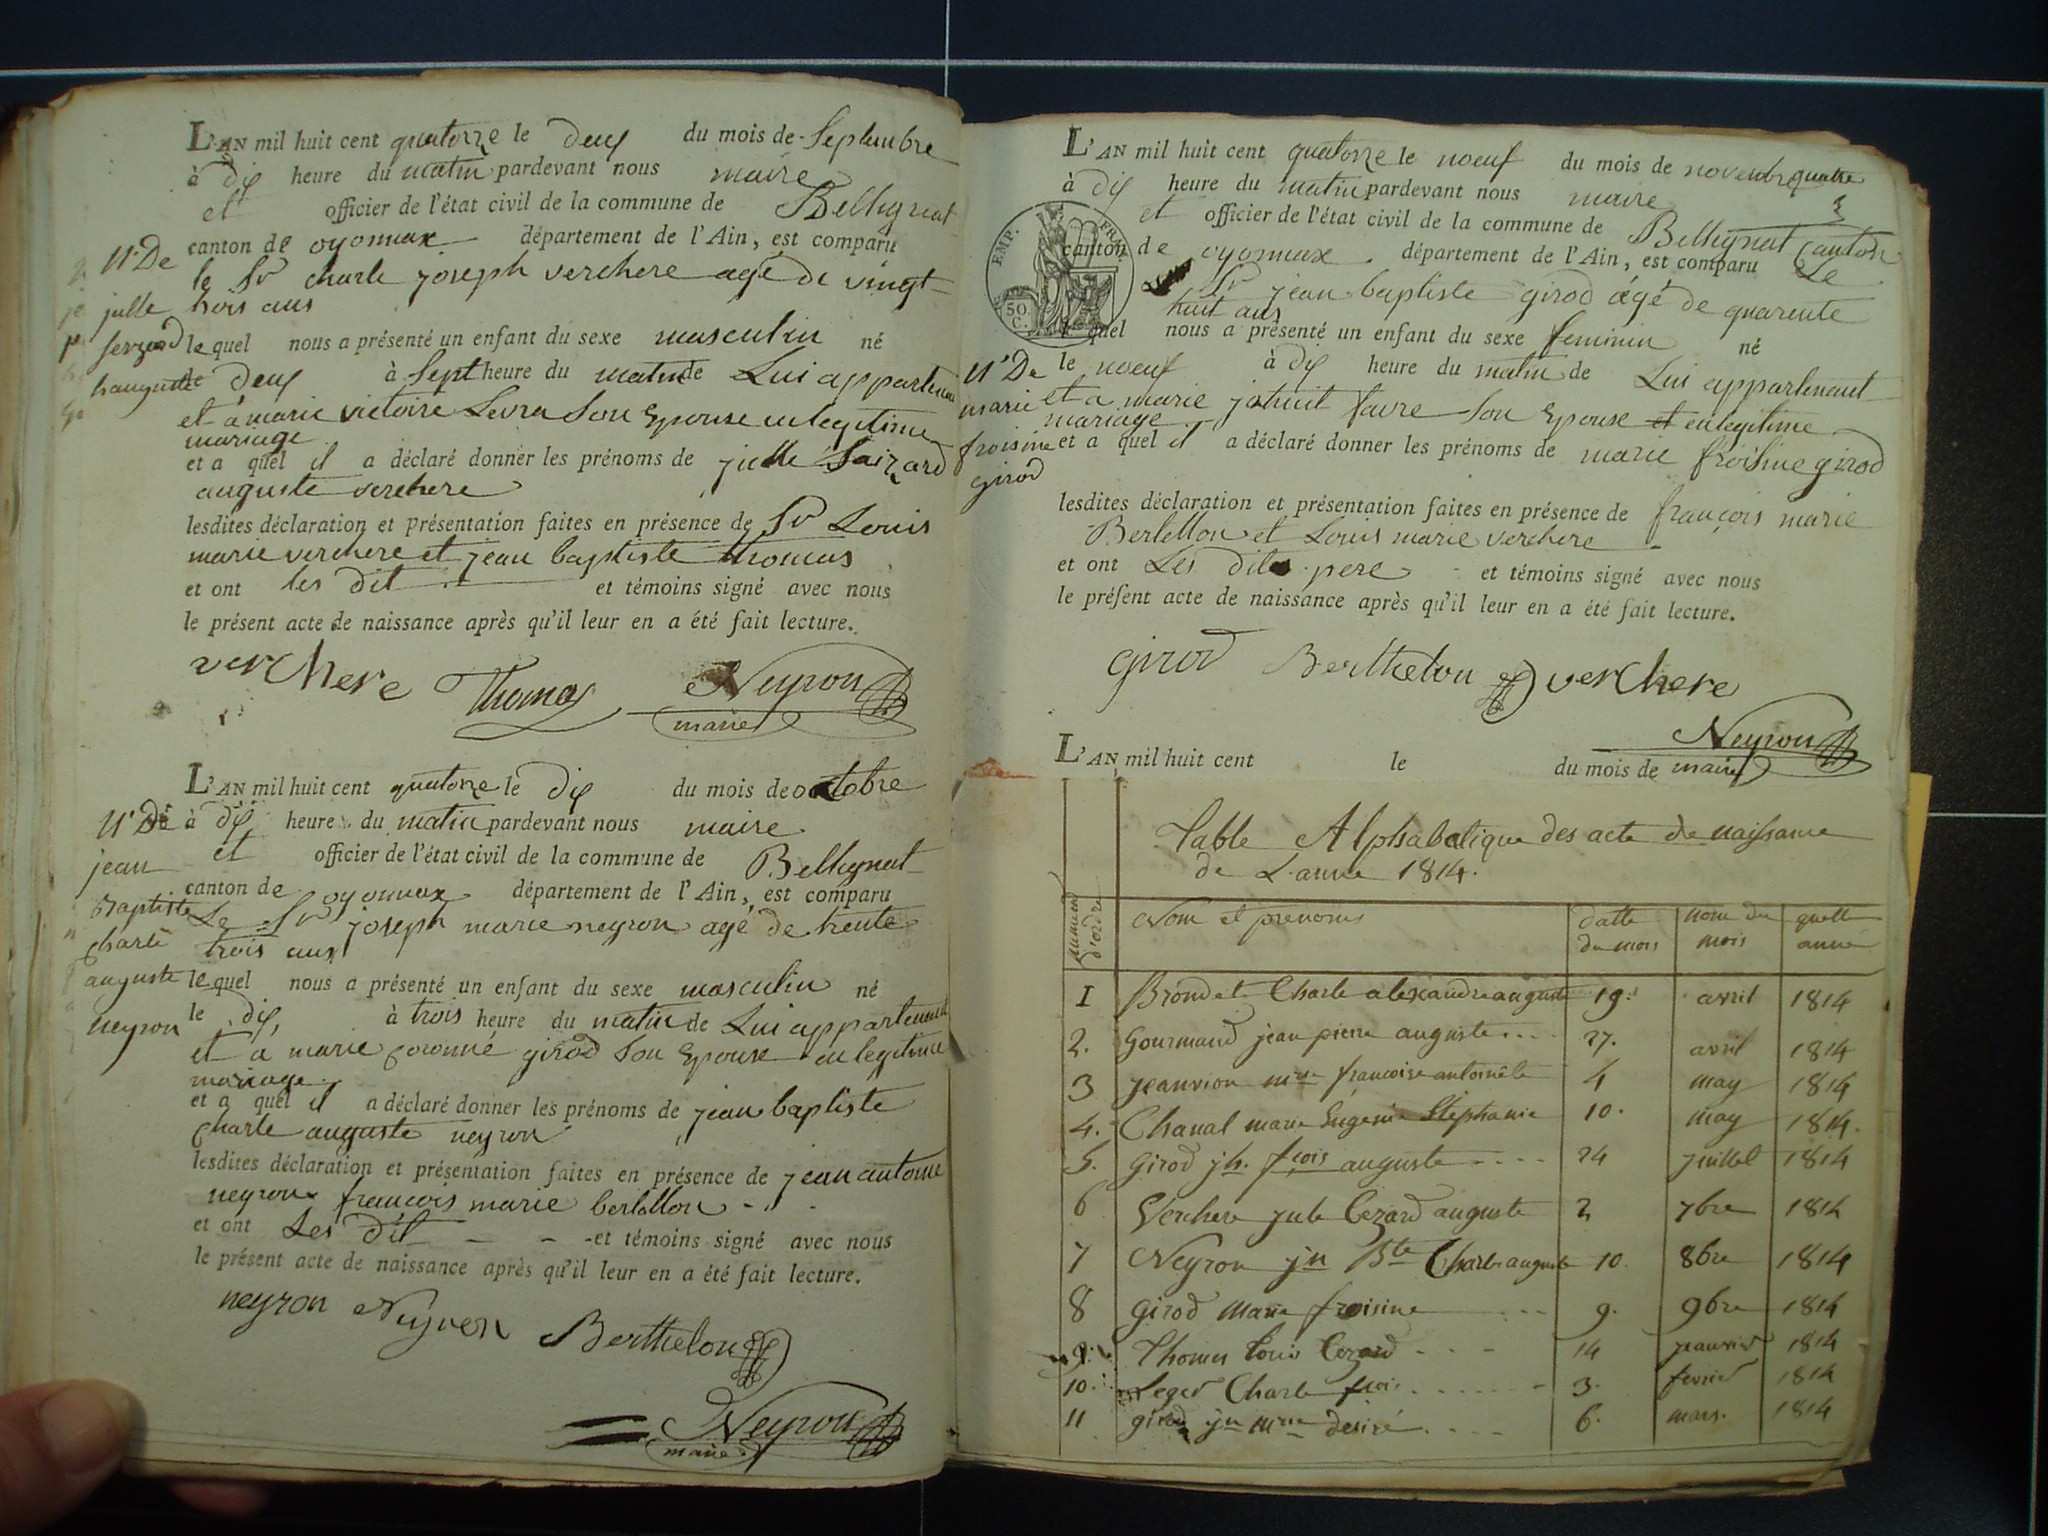 L'AN mil huit cent quatorze le deux du mois de Septembre
à dix heure du matin pardevant nous maire
et officier de l'état civil de la commune de Bellignat
canton de oyonnax département de l'Ain, est comparu
le Sr charle joseph verchere agé de vingt
trois ans
le quel nous a présenté un enfant du sexe masculin né
le deux à Sept heure du matin de Lui appartenant
et a marie victoire Levra Son Epouse en legitime
mariage
et a quel il a déclaré donner les prénoms de julle Saizard
auguste verchere
lesdites déclaration et présentation faites en présence de Sr Louis
marie verchere et jean baptiste thomas
et ont les dit et témoins signé avec nous
le présent acte de naissance après qu'il leur en a été fait lecture.
verchere Thomas Neyron
maire
N° De
julle
Sezard
auguste
L'AN mil huit cent quatorze le dix du mois de octobre
à dix heure du matin pardevant nous maire
et officier de l'état civil de la commune de Bellignat
canton de oyonnax département de l'Ain, est comparu
Le Sr joseph marie neyron agé de trente
trois ans
le quel nous a présenté un enfant du sexe masculin né
le dix à trois heure du matin de Lui appartenant
et a marie coronné girod Son Epouse en legitime
mariage
et a quel il a déclaré donner les prénoms de jean baptiste
charle auguste neyron
lesdites déclaration et présentation faites en présence de jean antoine
neyron françois marie bertellon
et ont Les dit et témoins signé avec nous
le présent acte de naissance après qu'il leur en a été fait lecture.
neyron Neyron Berthelon
Neyron
maire
N° De
jean
Baptiste
charle
auguste
neyron
L'AN mil huit cent quatorze le noeuf du mois de novembre quatre
à dix heure du matin pardevant nous maire
et officier de l'état civil de la commune de Bellignat canton
canton de oyonnax département de l'Ain, est comparu Le
Sr jean baptiste girod agé de quarente
huit ans
le quel nous a présenté un enfant du sexe feminin né
le noeuf à dix heure du matin de Lui appartenant
et a marie favre Son Epouse et en legitime
mariage
et a quel il a déclaré donner les prénoms de marie froisine girod
lesdites déclaration et présentation faites en présence de françois marie
Bertellon et Louis marie verchere
et ont Les dites pere et témoins signé avec nous
le présent acte de naissance après qu'il leur en a été fait lecture.
girod Berthelon verchere
Neyron
maire
EMP. FRAN.
50.
C.
N° De
marie
froisine
girod
L'AN mil huit cent le du mois de
Table Alphabetique des acte de naissance
de L'anné 1814.
numero d'ordre Nom et prenoms datte du mois nom du mois quelle anné
1 Brondet Charle alexandre auguste 19. avril 1814
2. Gourmand jean pierre auguste 27. avril 1814
3 jeanvion francoise antoinete 4 may 1814
4. Chanal marie Eugenie Stephanie 10. may 1814.
5. girod jh. fcois auguste 24 juillet 1814
6 Verchere jule Cezard auguste 2 7bre 1814
7 Neyron jn Bte Charle auguste 10. 8bre 1814
8 girod marie froisine 9. 9bre 1814
9. Thomas Louis Cezard 14 janvier 1814
10. Leger Charle fcois 3. fevrier 1814
11 girod jn desiré 6. mars. 1814